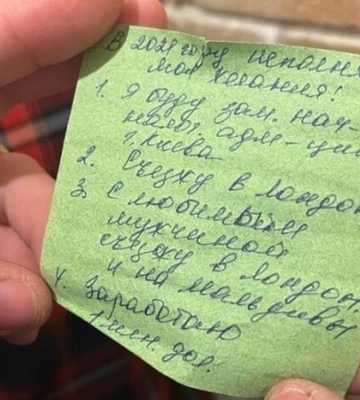 В 2021 году исполн
мои желания!
1. Я буду зам. нач
налог. адм-ции
г. Киева
2. Съезжу в Лондон
3. С любимым
мужчиной
съезжу в Лондон
и на Мальдивы
4. Заработаю
1 млн. дол.